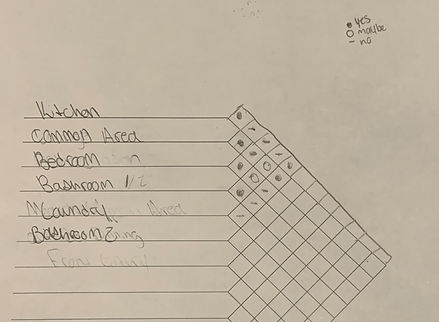 yes
maybe
no
Kitchen
Common Area
Bedroom
Bathroom 1/2
Laundry Area
Bathroom 2